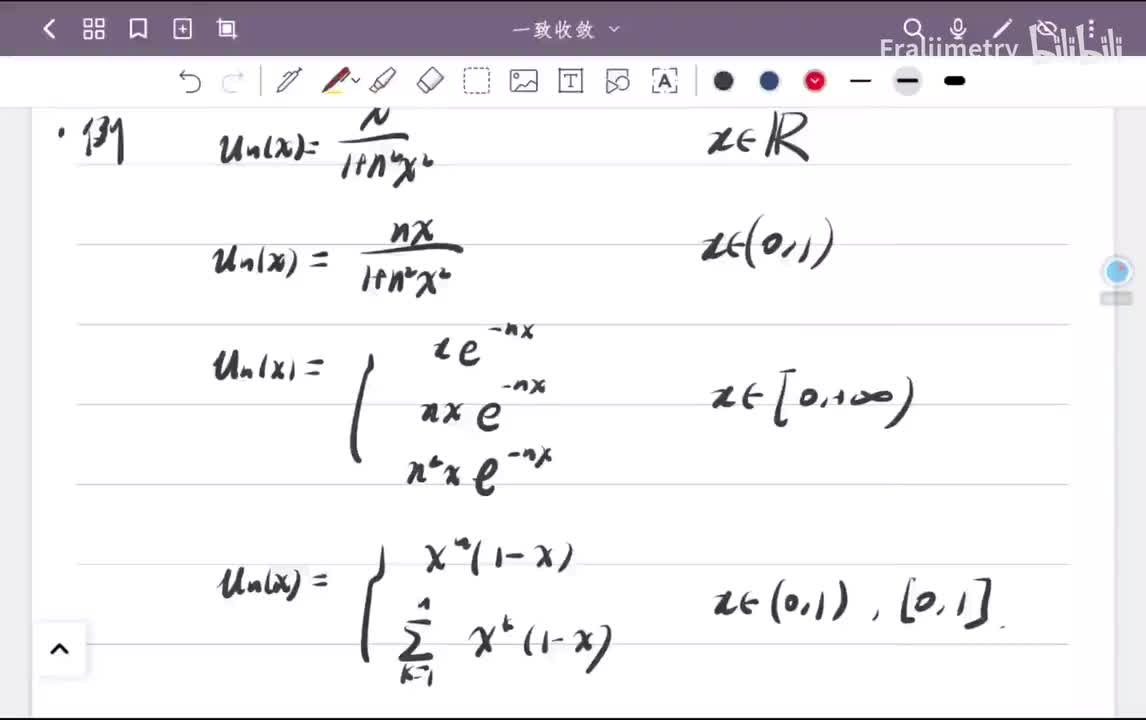 一致收敛
Fraliimetry bilibili
T A
·例 Uₙ(x)= N/(1+n²x²) x∈ℝ
Uₙ(x)= nx/(1+n²x²) x∈(0,1)
Uₙ(x)= { xe^{-nx}
nxe^{-nx} x∈[0,+∞)
n²xe^{-nx}
Uₙ(x)= { xⁿ(1-x)
∑_{k=1}^{n} x^k(1-x) x∈(0,1), [0,1].